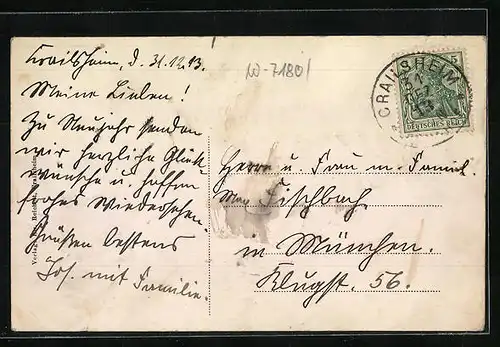 Krailsheim, d. 31.12.13.
Meine Lieben!
Zu Neujahr senden
wir herzliche Glück-
wünsche u. hoffen
frohes Wiedersehen.
Grüßen bestens
Jos. mit Familie.
W-7180/
CRAILSHEIM
31
DEZ
13
5
DEUTSCHES REICH
Herrn u. Frau m. Famil.
Max Fischbach
in München.
Klugst. 56.
Verlag